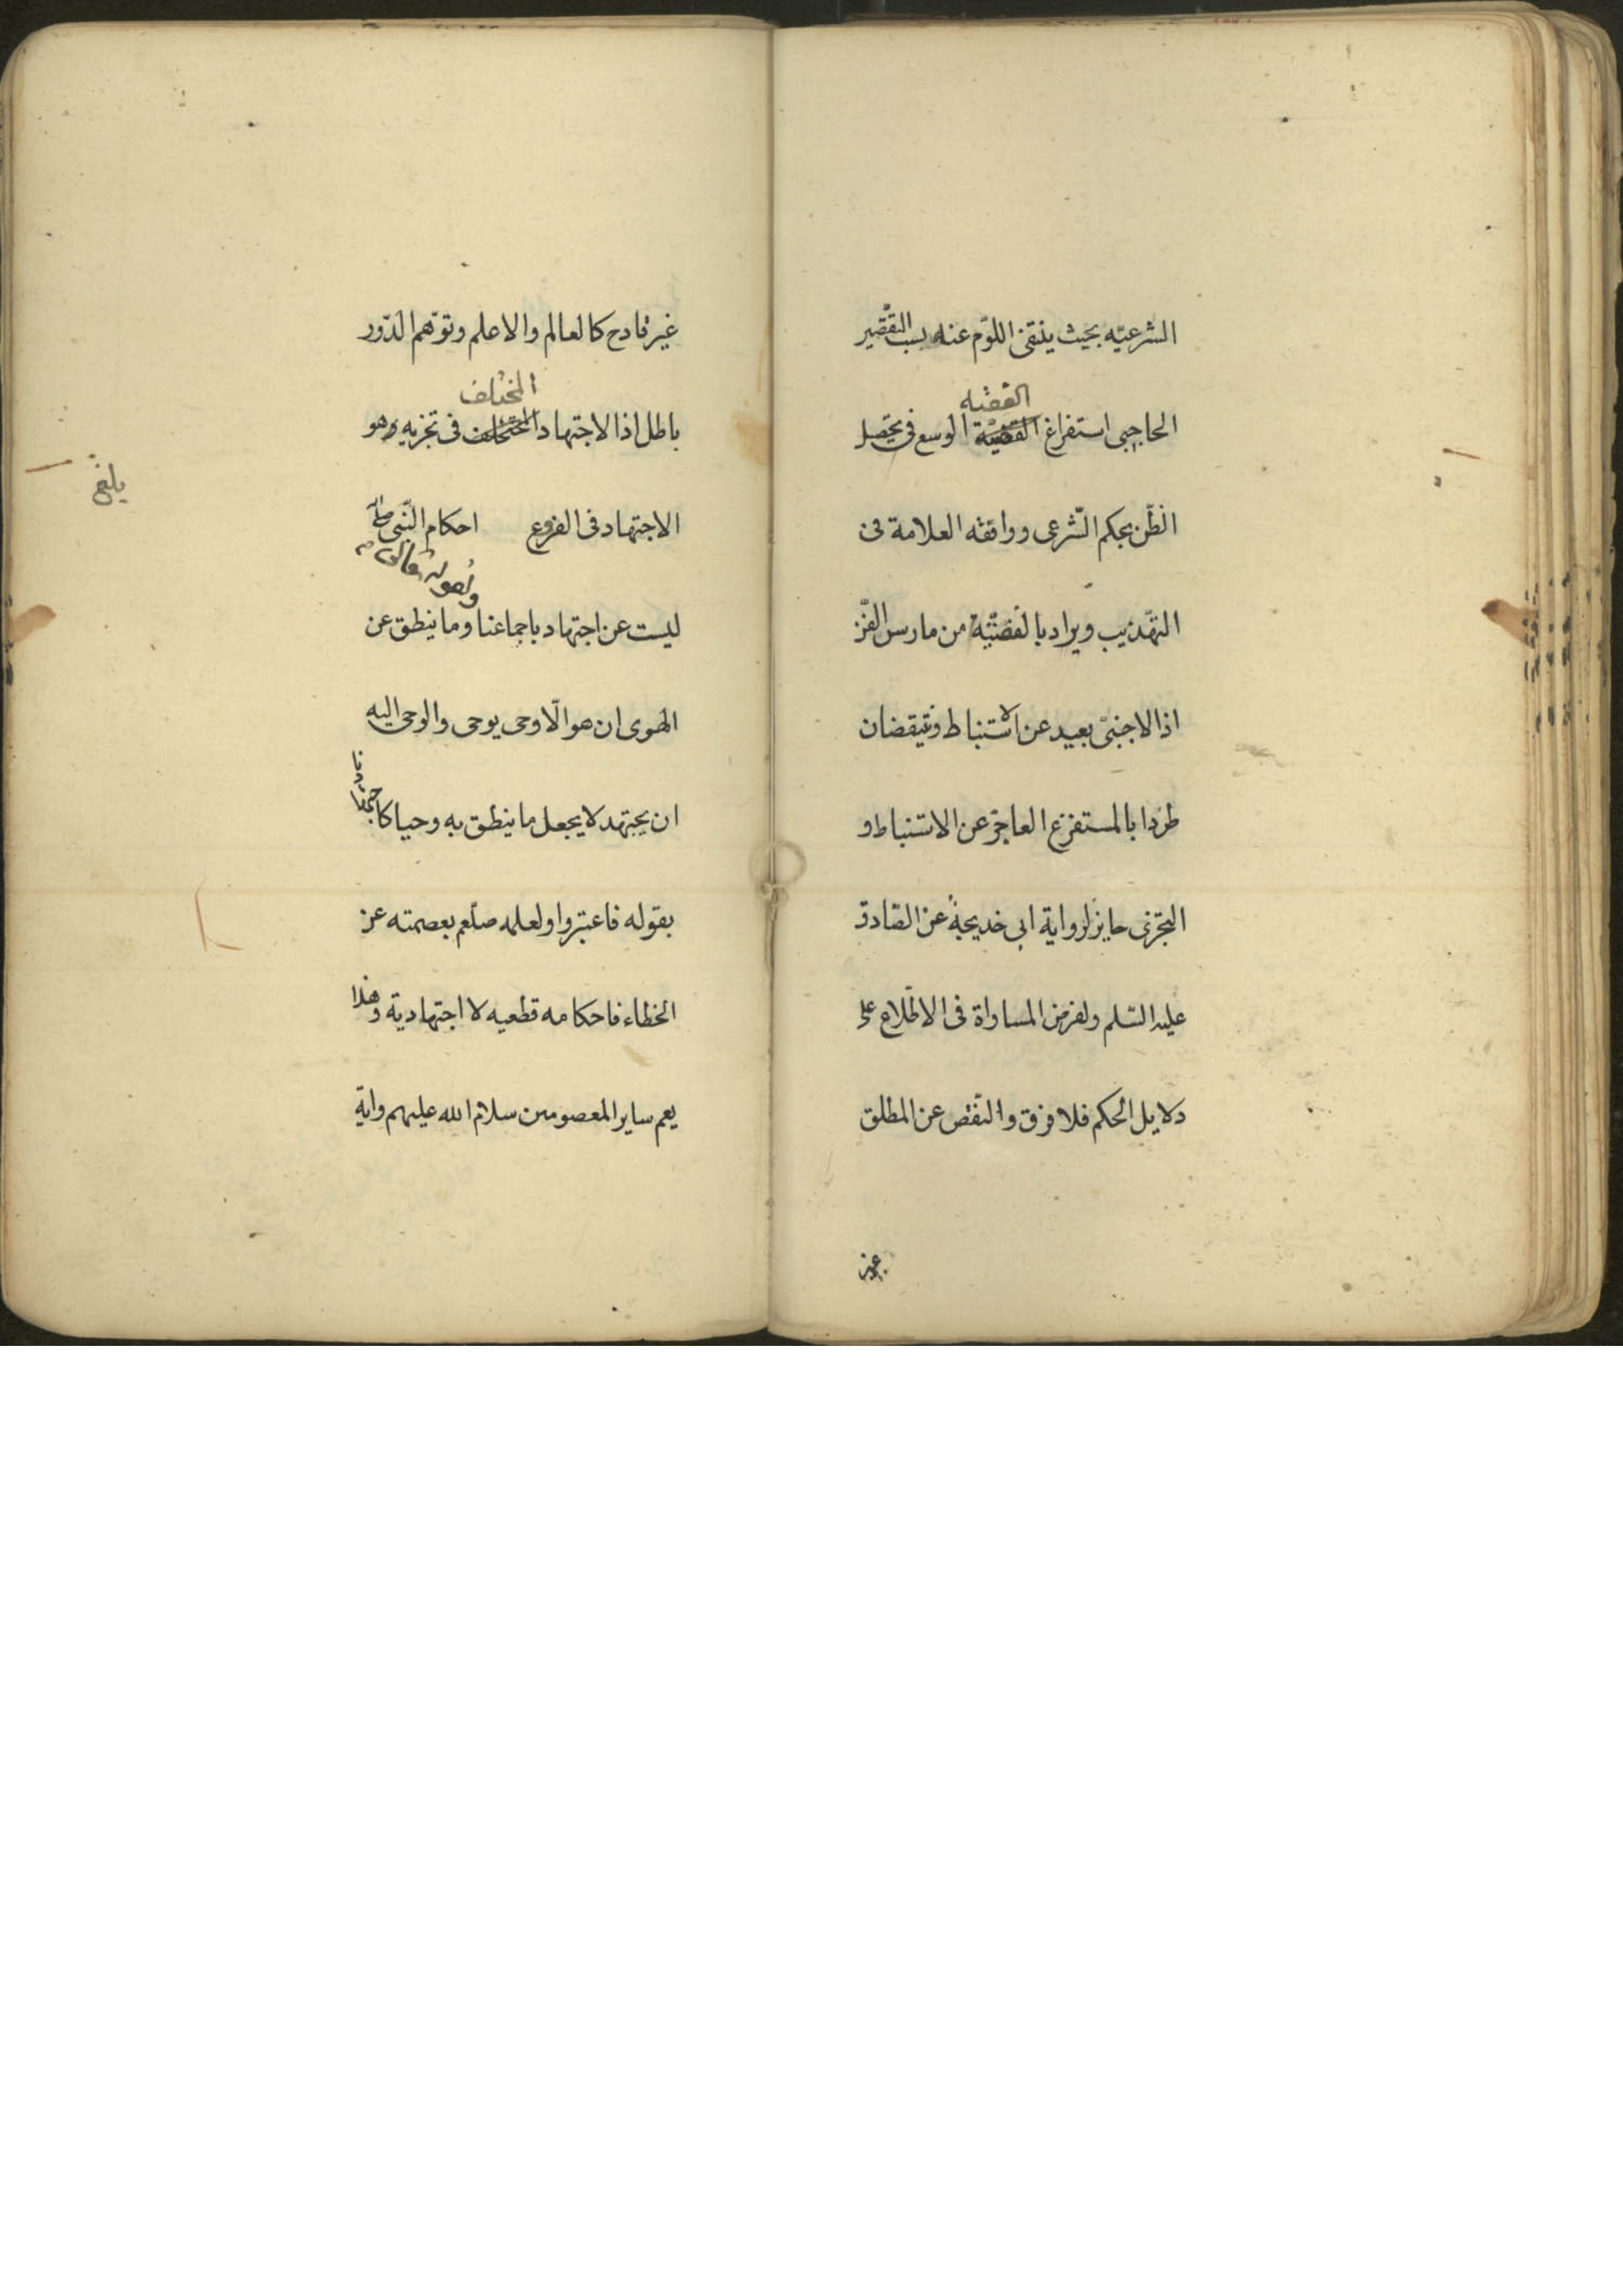 الشرعيّه بحيث ينتفى اللوّم عنه بسبب التقّصير
الفقيه
الحاجبى استفراغ الفقيّة الوسع فى تحصيل
الظّن بحكم الشّرعى ووافقه العلامة فى
التهّذيب ويراد بالفقيّه من مارس الفّن
اذ الاجنبىّ بعيد عن الاستنباط وينتقضان
طردا بالمستفرغ العاجز عن الاستنباط و
التجزى جايز لرواية ابى خديجة عن الصّادق
عليه السّلم ولفرض المساواة فى الاطّلاع على
دلايل الحكم فلا فرق والنّقص عن المطلق
غير
غير قادح كالعالم والاعلم وتوّهم الدّور
المختلف
باطل اذ الاجتهاد المختلف فى تجزيه وهو
يلغ
الاجتهاد فى الفروع احكام النّبى صلّى
ولقوله تعالى
ليست عن اجتهاد باجماعنا وما ينطق عن
الهوى ان هو الّا وحى يوحى والوحى اليه
ان يجتهد لا يجعل ما ينطق به وحيا كاجتهادنا
بقوله فاعتبروا ولعلمه صلّعم بعصمته عن
الخطاء فاحكامه قطعيه لا اجتهادية وهذا
يعم ساير المعصومين سلام الله عليهم واية